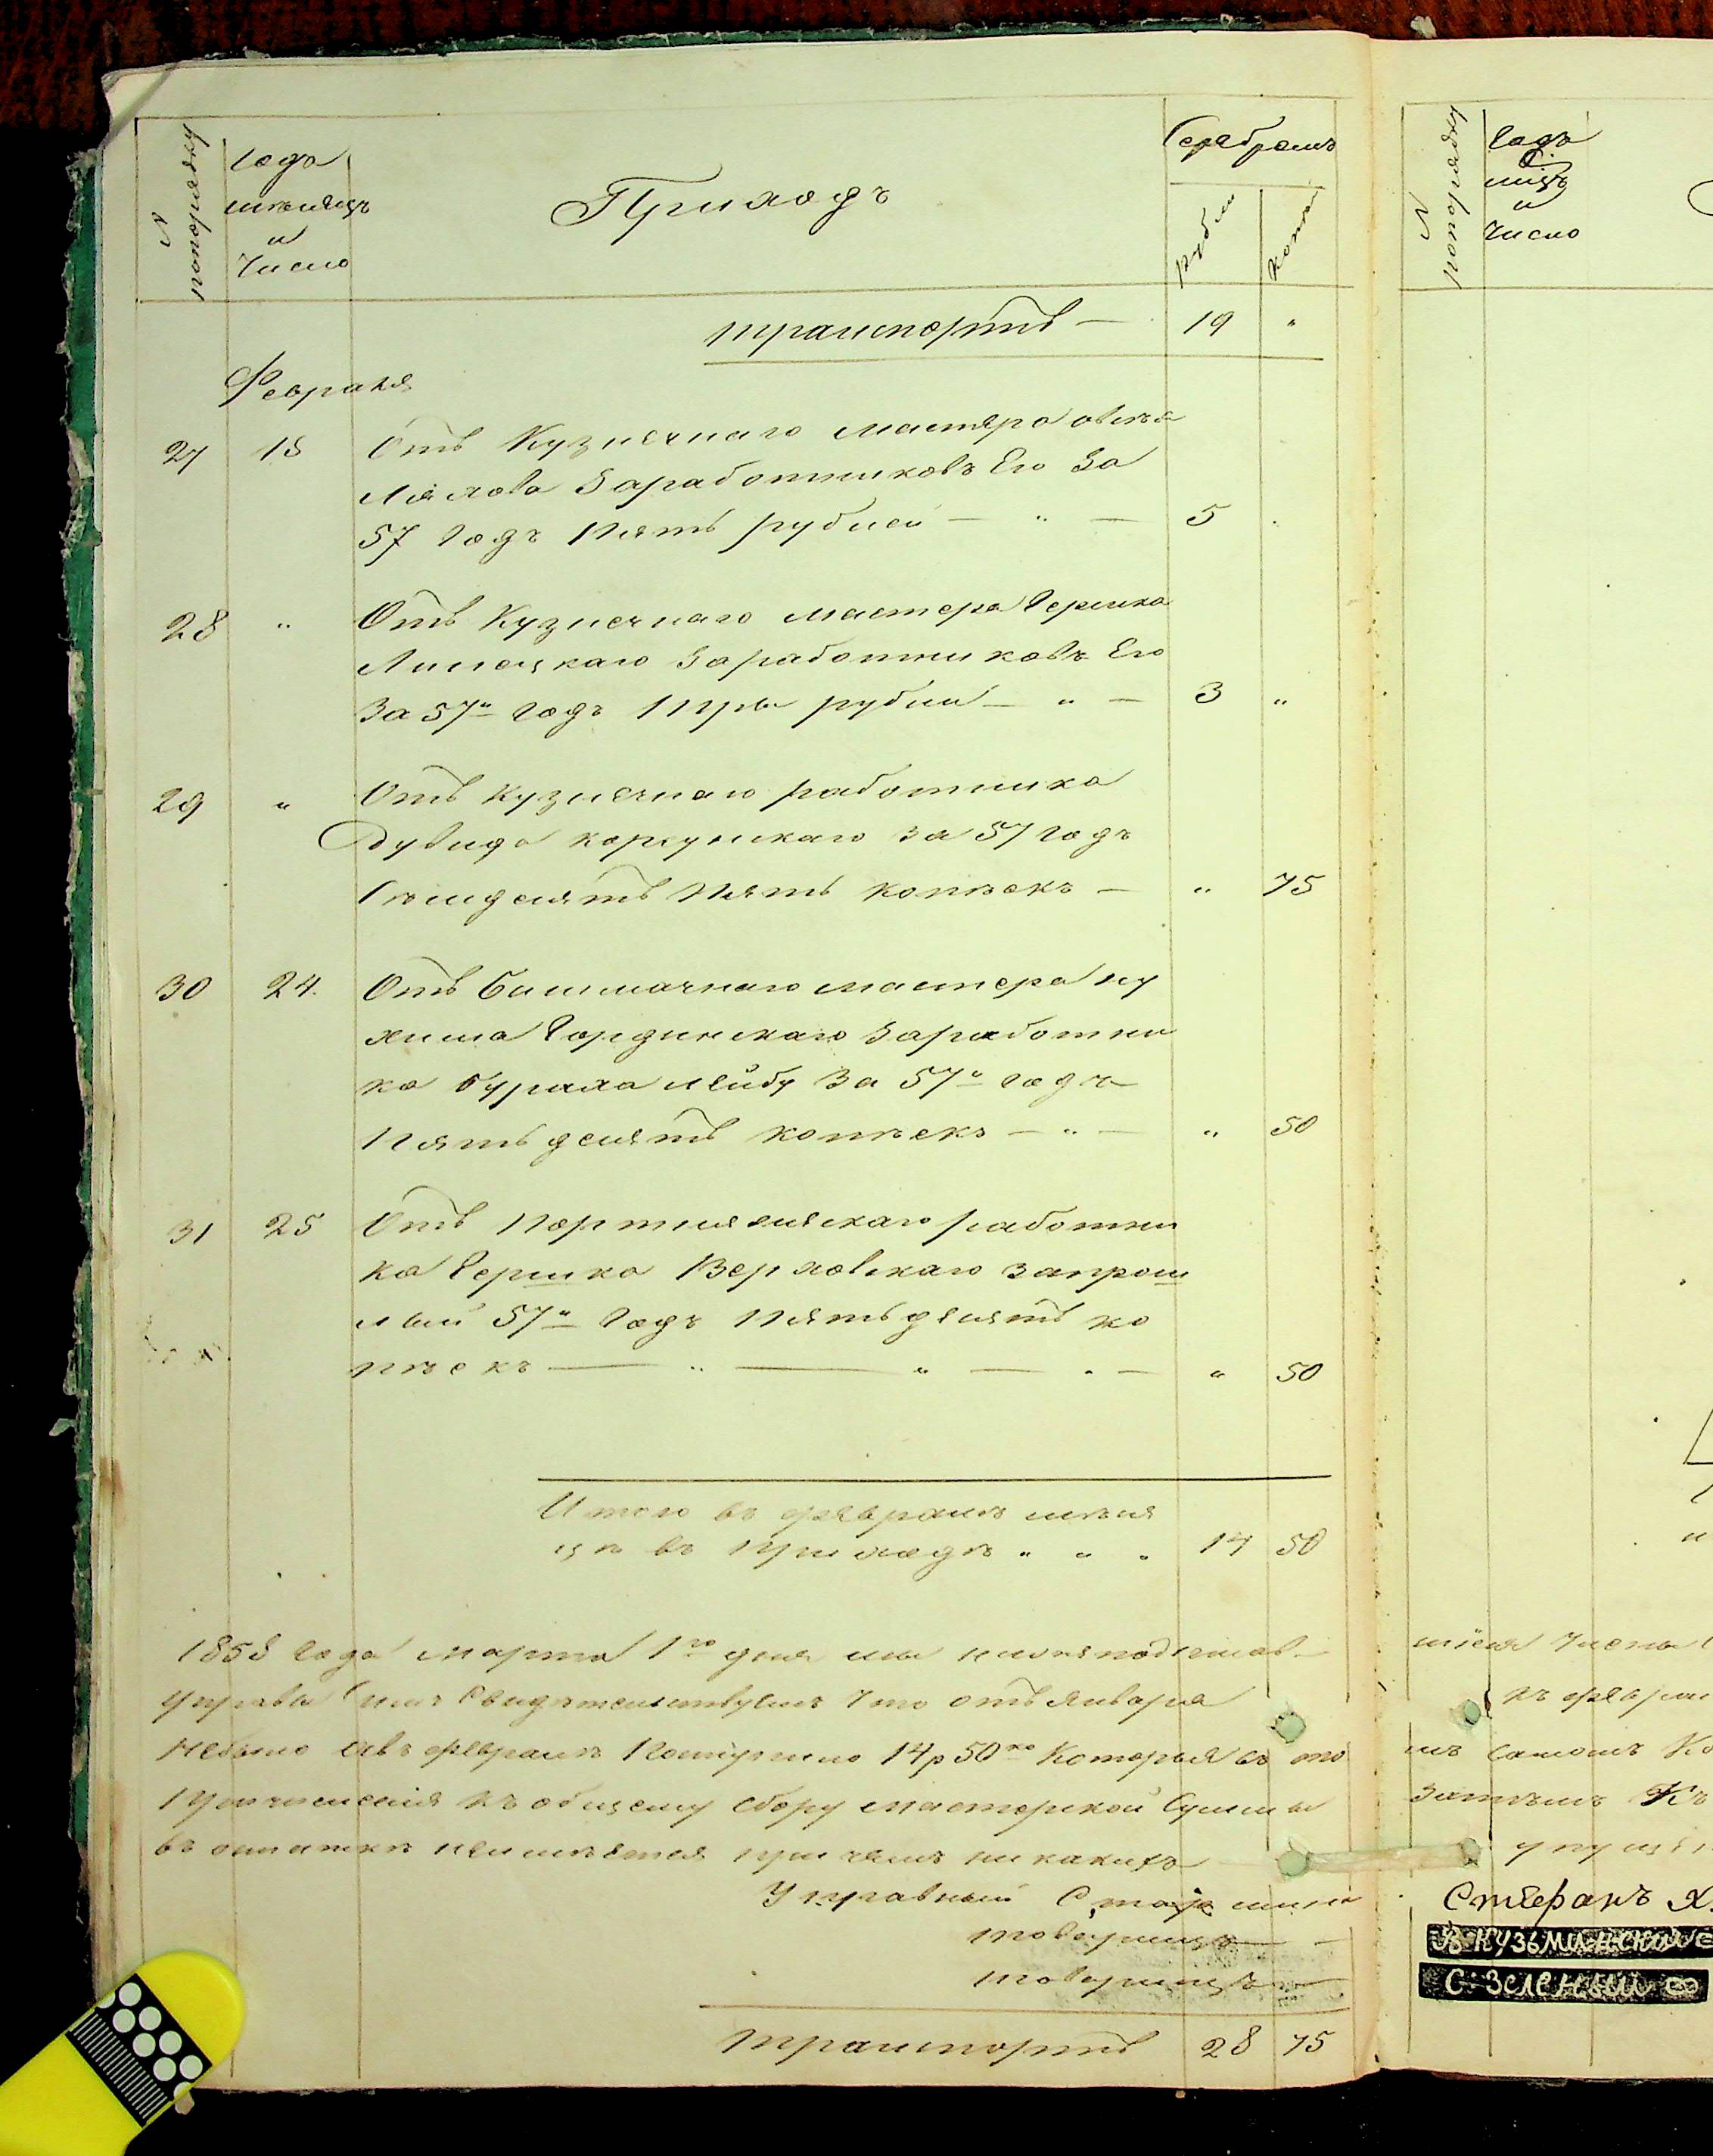 N попорядку
Года
мѣсяцъ
и
Число
Приходъ
Серебромъ
рубли
копѣ
транспортъ — 19 "
Февраля
27 18 Отъ Кузнечнаго мастера овсѣя
Ляхова Заработниковъ Его За
57 Годъ Пять рублей — " — 5 .
28 " Отъ Кузнечнаго мастера Гершка
Липецкаго Заработниковъ Его
За 57й Годъ Три рубли — " — 3 "
29 " Отъ Кузнечнаго работника
Дувида корсунскаго за 57 Годъ
Семдесятъ Пять копѣекъ — " 75
30 24. Отъ Башмачнаго мастера ну
хима Гординскаго Заработни
ка Бураха лейбу За 57й годъ
Пятьдесятъ копѣекъ — " — " 50
31 25 Отъ Портняжскаго работни
ка Гершка Верховскаго запрош
лый 57й Годъ Пятьдесятъ ко
пѣекъ — " — " — " — " 50
Итого въ февралѣ мѣся
цѣ въ Приходѣ " " " 14 50
1858 Года марта 1го дня мы нижеподписав-
Управы Симъ Свидѣтельствуемъ Что отъ Января
небыло авъ февралѣ Поступило 14р 50ко Которыя въ то
Причисленія къ общему сбору мастерской Суммы
въ остаткѣ неимѣется при чемъ никакихъ
Управный Старшина
товарищъ —
товарищъ —
транспортъ 28 75
N попорядку
Годъ
мцъ
и
Число
шіеся Члены
къ феврал
мъ самомъ Ко
Затѣмъ Къ
упущен
Стефанъ Х.
В КУЗЬМИНСКИЙ
С ЗЕЛЕНЫЙ